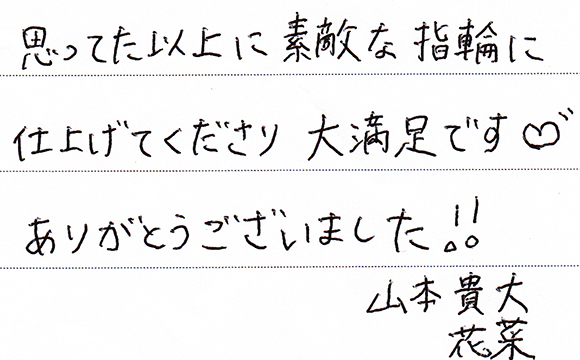 思ってた以上に素敵な指輪に
仕上げてくださり 大満足です♡
ありがとうございました!!
山本貴大
花菜